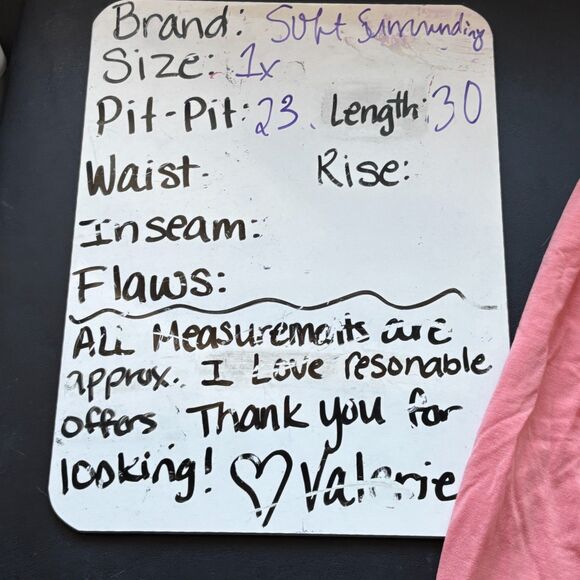 Brand: Soft Surrounding
Size: 1x
Pit-Pit: 23 Length: 30
Waist- Rise:
Inseam:
Flaws:
ALL Measuremants are
approx. I Love resonable
offers Thank you for
looking! ♡ Valerie